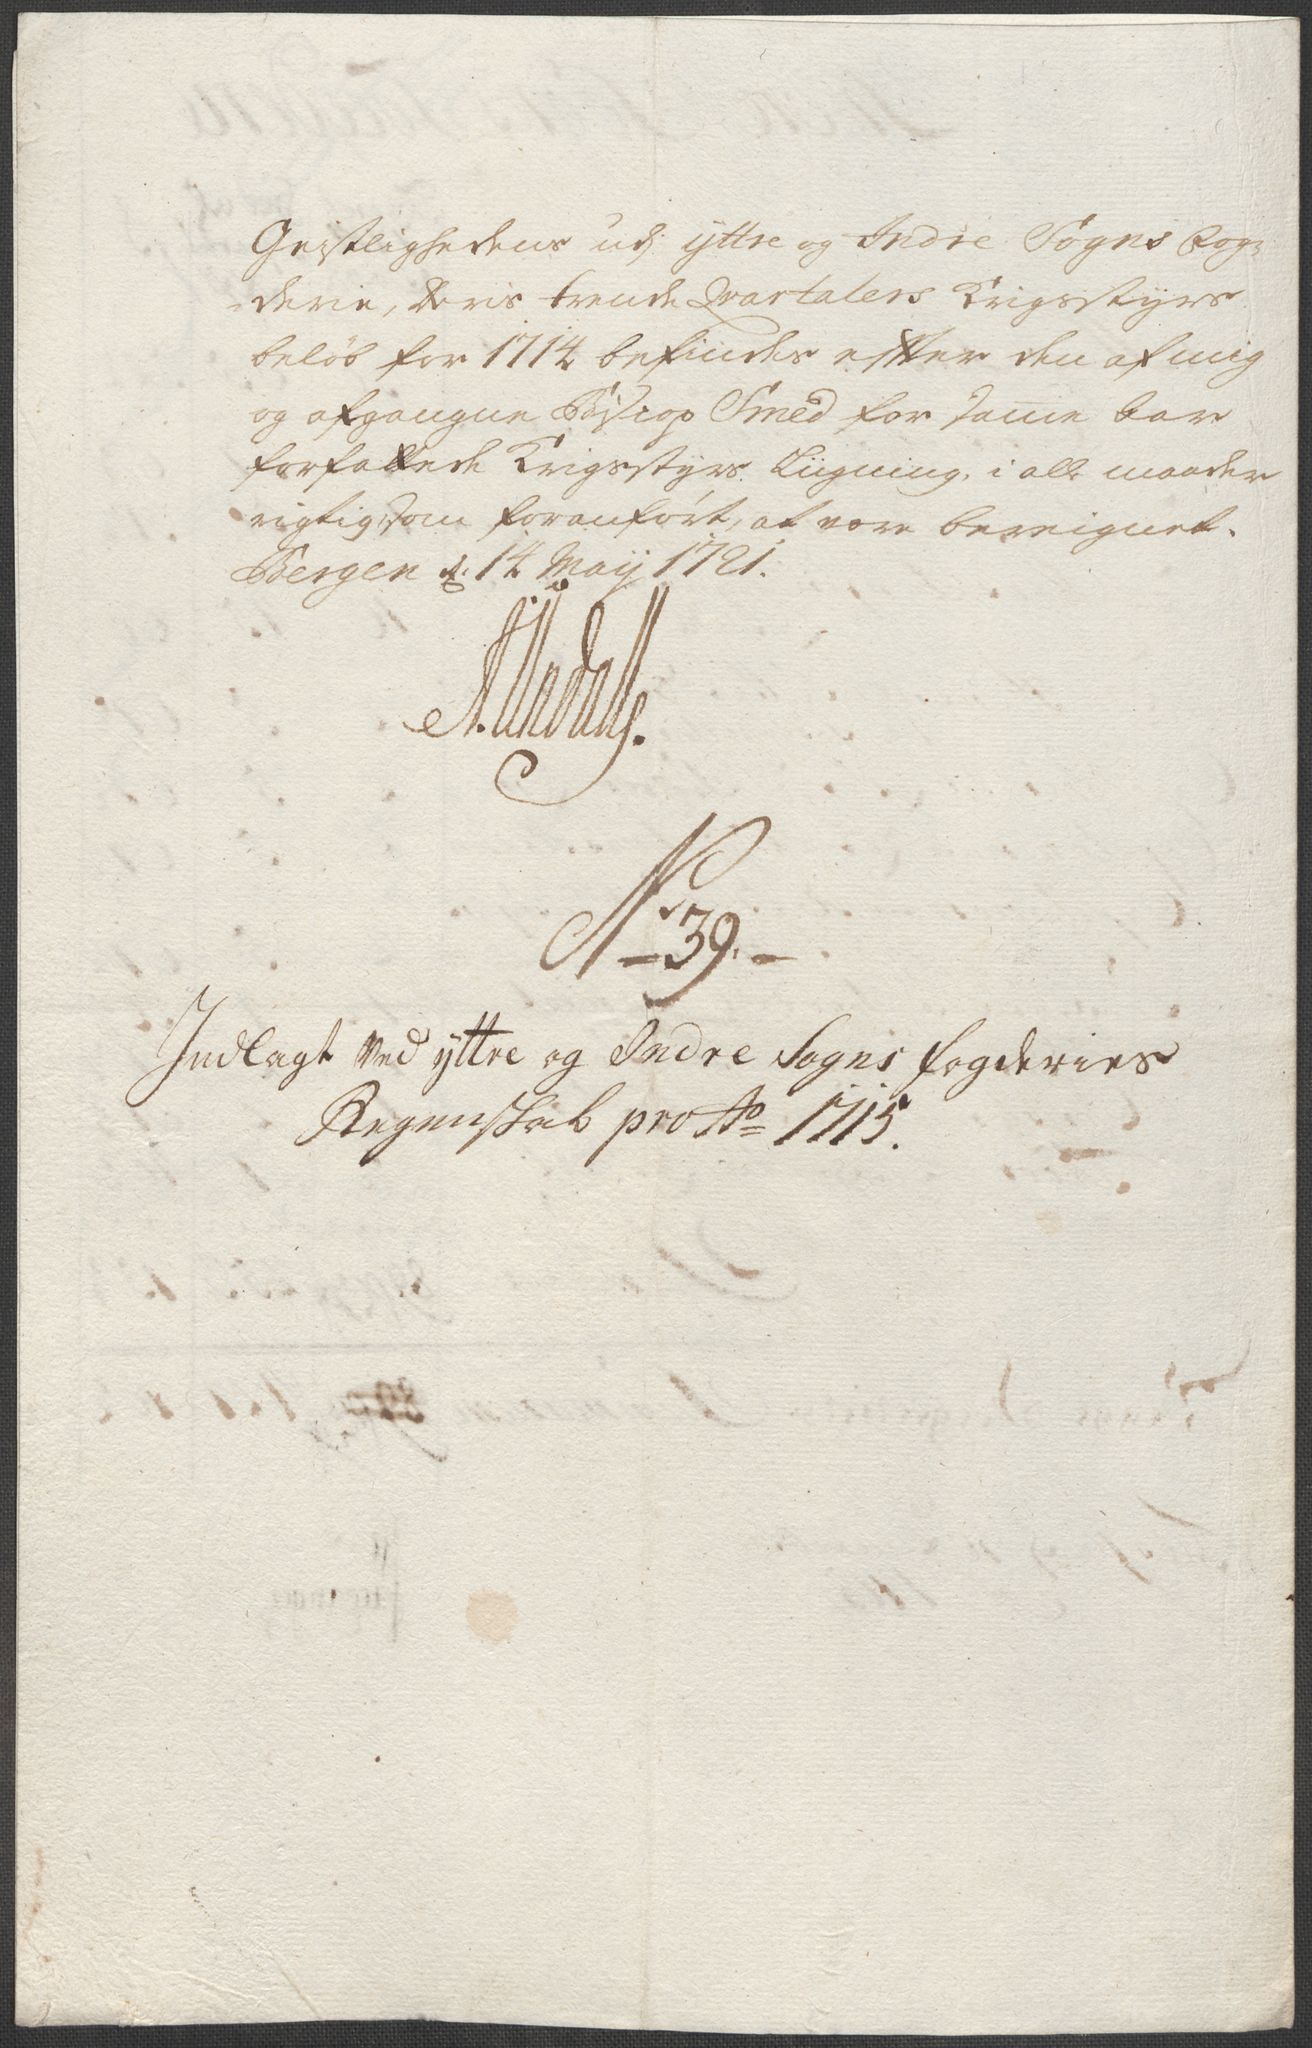 Geistlighedens udj yttre og Indre Sogns Fog-
derie, deris trende Qvartalers Krigsstyrs
beløb for 1714 befindes efter den af mig
og afgangne Biscop Smed for samme
forfattede Krigsstyrs Liigning, i alle maader
rigtig, som foranført, at være bereignet.
Bergen d. 14 Maij 1721.
No 39.
Indlagt ved yttre og Indre Sogns fogderies
Regenskab pro Ao 1715.